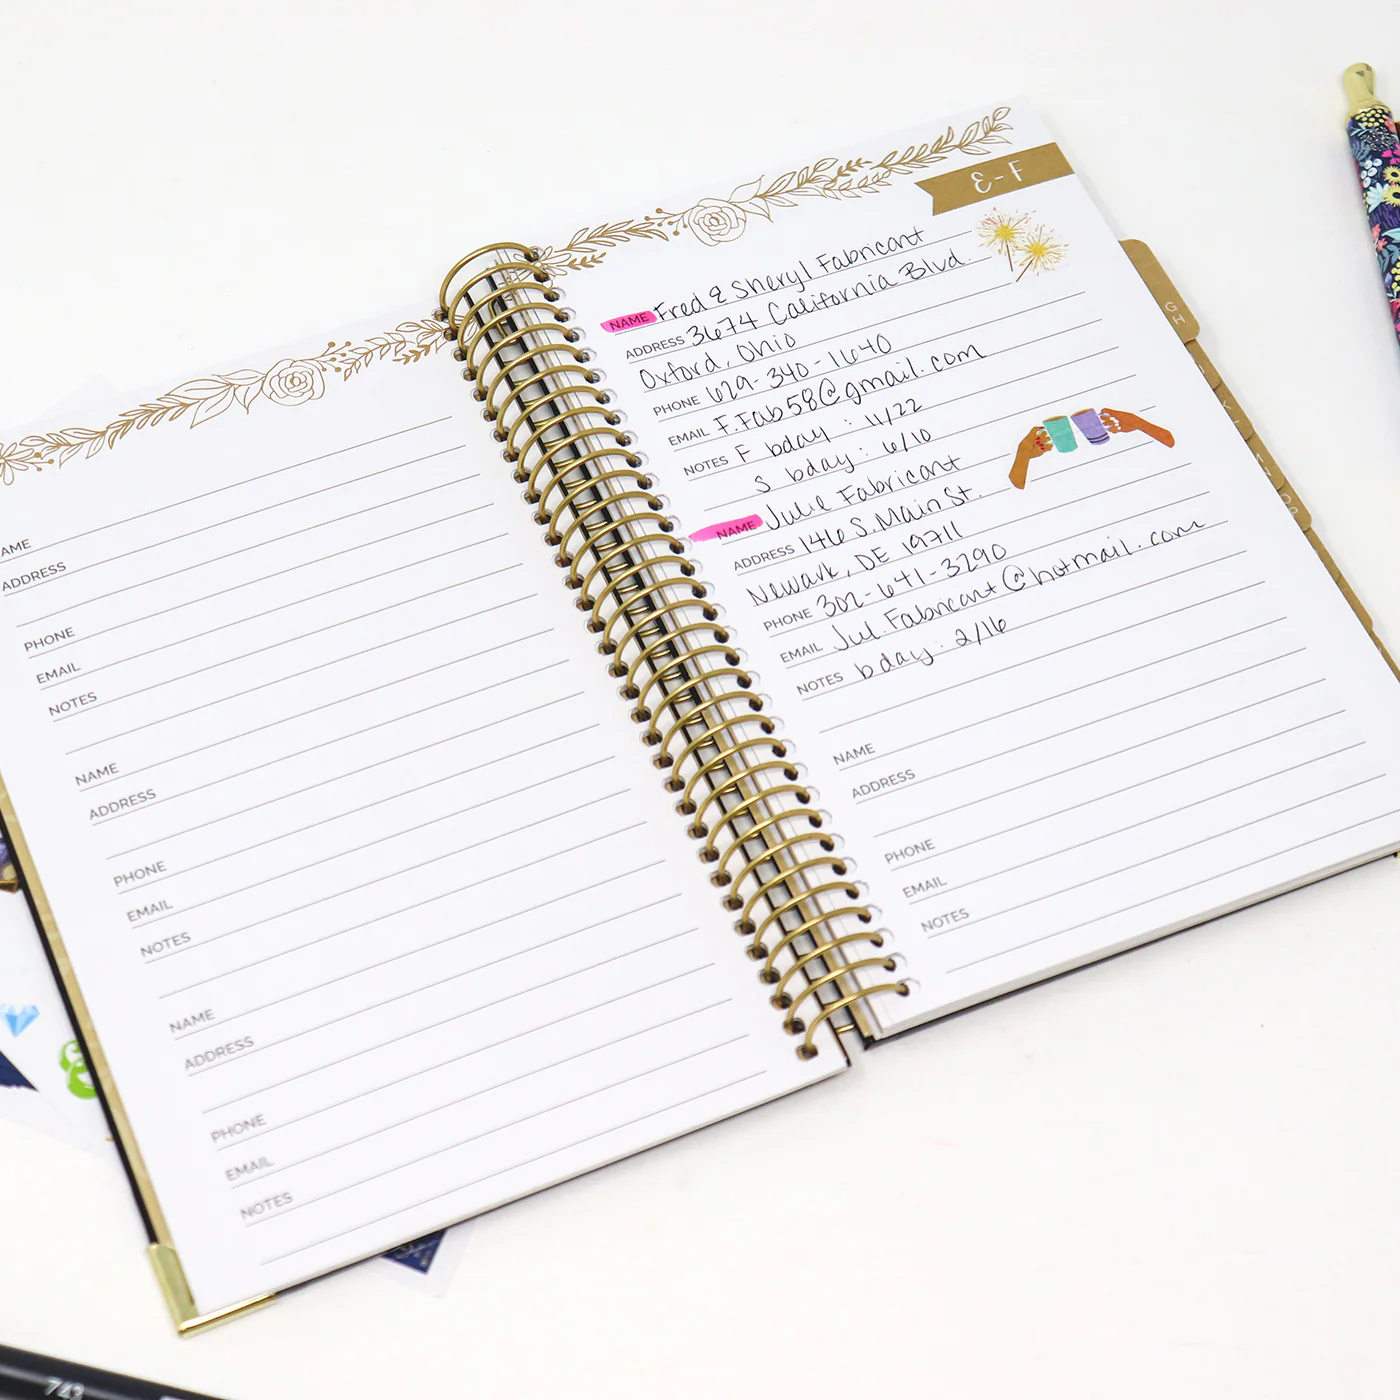 AME
ADDRESS
PHONE
EMAIL
NOTES
NAME
ADDRESS
PHONE
EMAIL
NOTES
NAME
ADDRESS
PHONE
EMAIL
NOTES
E-F
NAME Fred & Sheryl Fabricant
ADDRESS 3674 California Blvd.
Oxford, Ohio
PHONE 629-340-1640
EMAIL F.Fab58@gmail.com
NOTES F bday : 11/22
S bday : 6/10
NAME Julie Fabricant
ADDRESS 146 S. Main St.
Newark, DE 19711
PHONE 302-641-3290
EMAIL Jul.Fabricant@hotmail.com
NOTES bday : 2/16
NAME
ADDRESS
PHONE
EMAIL
NOTES
GH
743